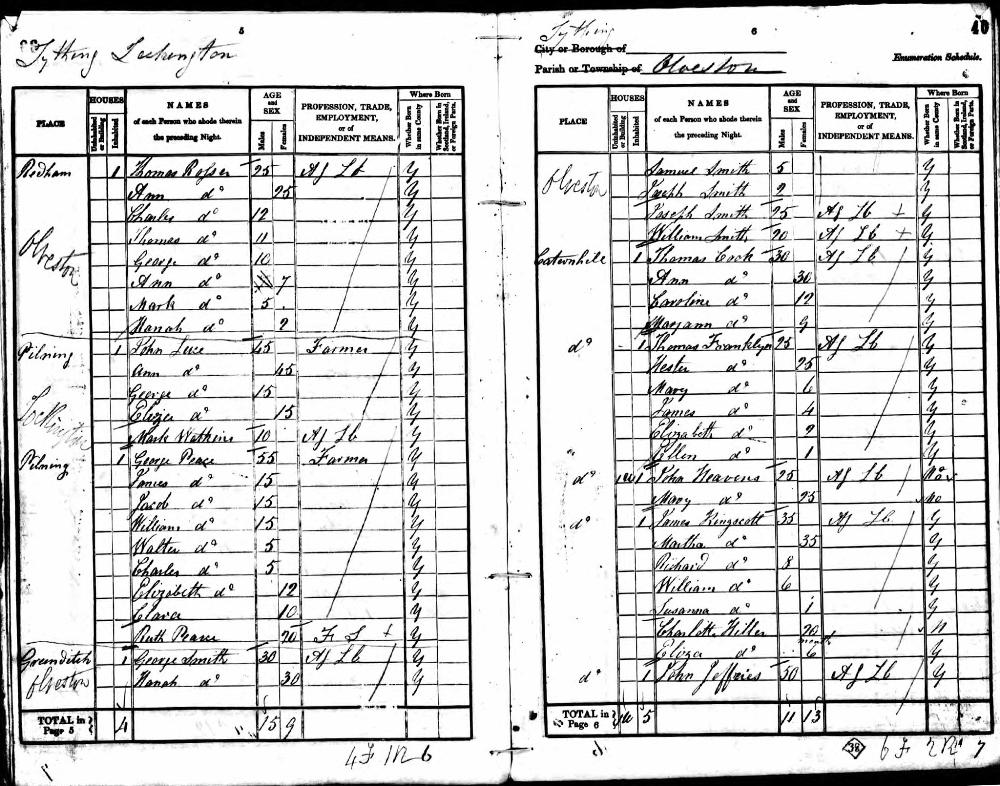 5
Tything Lockington
PLACE
HOUSES
Uninhabited or Building
Inhabited
NAMES
of each Person who abode therein the preceding Night.
AGE and SEX
Males
Females
PROFESSION, TRADE, EMPLOYMENT, or of INDEPENDENT MEANS.
Where Born
Whether Born in same County
Whether Born in Scotland, Ireland, or Foreign Parts.
Redham 1 Thomas Rosser 25 Ag Lb Y
Ann do 25 Y
Charles do 12 Y
Olveston Thomas do 11 Y
George do 10 Y
Ann do 7 Y
Mark do 5 Y
Hanah do 2 Y
Pilning 1 John Luce 45 Farmer Y
Ann do 45 Y
George do 15 Y
Lockington Elizer do 15 Y
Mark Watkins 10 Ag Lb Y
Pilning 1 George Pearce 55 Farmer Y
James do 15 Y
Jacob do 15 Y
William do 15 Y
Walter do 5 Y
Charles do 5 Y
Elizabeth do 12 Y
Clara do 10 Y
Ruth Pearce 20 F S + Y
Greenditch 1 George Smith 30 Ag Lb Y
Olveston Hanah do 30 Y
TOTAL in Page 5 } 4 15 9
4F 1R 6
6
40
Tything
City or Borough of
Parish or Township of Olveston
Enumeration Schedule.
PLACE
HOUSES
Uninhabited or Building
Inhabited
NAMES
of each Person who abode therein the preceding Night.
AGE and SEX
Males
Females
PROFESSION, TRADE, EMPLOYMENT, or of INDEPENDENT MEANS.
Where Born
Whether Born in same County
Whether Born in Scotland, Ireland, or Foreign Parts.
Olveston Samuel Smith 5 Y
Joseph Smith 2 Y
Joseph Smith 25 Ag Lb + Y
William Smith 20 Ag Lb + Y
1 Thomas Cook 30 Ag Lb Y
Ann do 30 Y
Caroline do 12 Y
Maryann do 9 Y
do 1 Thomas Franklyn 25 Ag Lb Y
Hester do 25 Y
Mary do 6 Y
James do 4 Y
Elizabeth do 2 Y
Ellen do 1 Y
do 1U 1 John Heavens 25 Ag Lb
Mary do 25 No
do 1 James Kingscott 35 Ag Lb Y
Martha do 35 Y
Richard do 8 Y
William do 6 Y
Susanna do 1 Y
Charlott Hiller 20 N
Eliza do 6 month Y
do 1 John Jeffries 50 Ag Lb Y
TOTAL in Page 6 } 1U 5 11 13
38
6F 2R 7